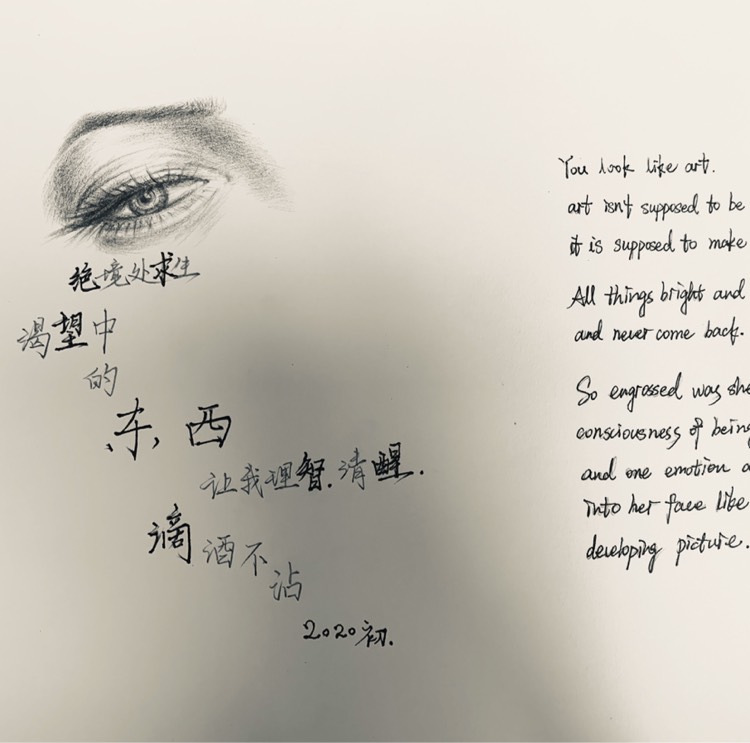 绝境处求生
渴望中
的
东西
让我理智.清醒.
滴酒不
沾
2020初.
You look like art.
art isn't supposed to be
it is supposed to make
All things bright and
and never come back.
So engrossed was she
consciousness of being
and one emotion a
into her face like
developing picture.